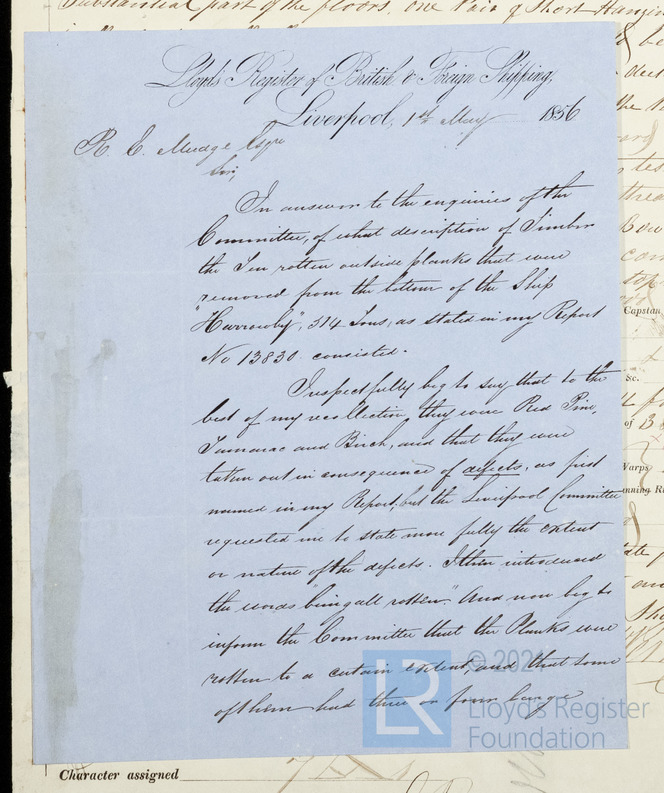 Substantial part of the floors. one Pair of Short Hanging
Lloyd's Register of British & Foreign Shipping,
Liverpool, 1st May 1856
R. E. Mudge Esqre
Sir,
In answer to the enquiries of the
Committee, of what description of Timber
the Ten rotten outside planks that were
removed from the bottom of the Ship
"Harrowby", 514 Tons, as stated in my Report
No 13830. consisted.
I respectfully beg to say that to the
best of my recollection they were Red Pine,
Tamarac and Birch, and that they were
taken out in consequence of defects, as first
named in my Report, but the Liverpool Committee
requested me to state more fully the extent
or nature of the defects. I then introduced
the words "being all rotten". And now beg to
inform the Committee that the Planks were
rotten to a certain extent, and that some
of them had three or four large
Capstan
&c.
of
Warps
Character assigned
LR
© 2021
Lloyd's Register
Foundation